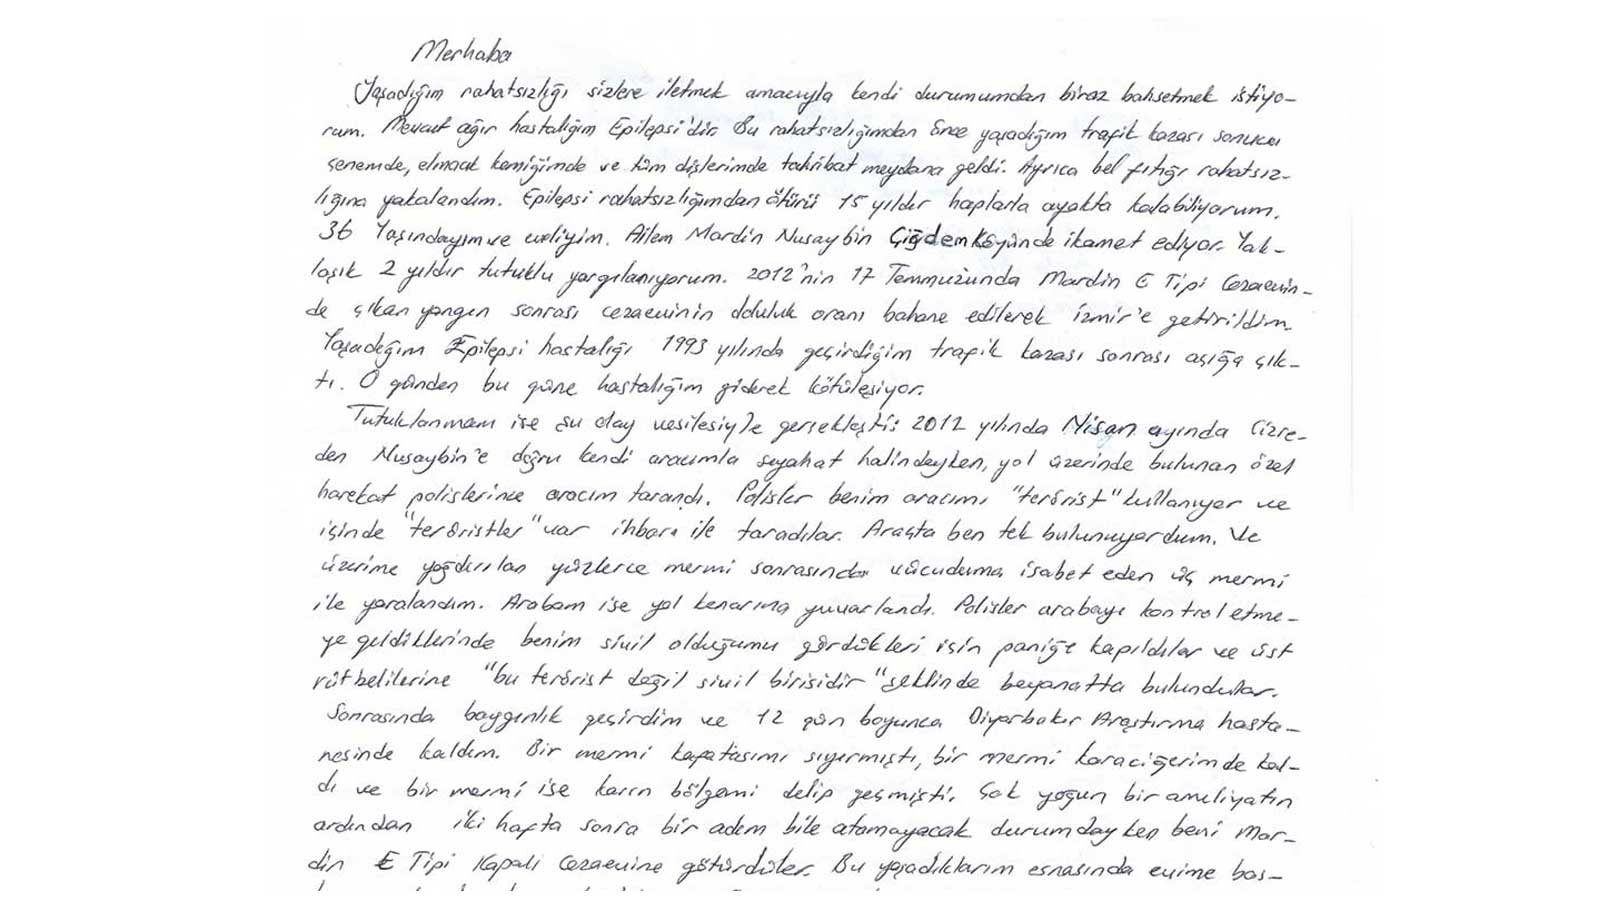 Merhaba
Yaşadığım rahatsızlığı sizlere iletmek amacıyla kendi durumumdan biraz bahsetmek istiyo-
rum. Mevcut ağır hastalığım Epilepsi'dir. Bu rahatsızlığımdan önce yaşadığım trafik kazası sonucu
çenemde, elmacık kemiğimde ve tüm dişlerimde tahribat meydana geldi. Ayrıca bel fıtığı rahatsız-
lığına yakalandım. Epilepsi rahatsızlığımdan ötürü 15 yıldır haplarla ayakta kalabiliyorum.
36 Yaşındayım ve evliyim. Ailem Mardin Nusaybin Çiğdem Köyünde ikamet ediyor. Yak-
laşık 2 yıldır tutuklu yargılanıyorum. 2012'nin 17 Temmuzunda Mardin E Tipi Cezaevin-
de çıkan yangın sonrası cezaevinin doluluk oranı bahane edilerek İzmir'e getirildim.
Yaşadığım Epilepsi hastalığı 1993 yılında geçirdiğim trafik kazası sonrası açığa çık-
tı. O günden bu güne hastalığım giderek kötüleşiyor.
Tutuklanmam ise şu olay vesilesiyle gerçekleşti: 2012 yılında Nisan ayında Cizre-
den Nusaybin'e doğru kendi aracımla seyahat halindeyken, yol üzerinde bulunan özel
harekat polislerince aracım tarandı. Polisler benim aracımı "terörist" kullanıyor ve
içinde "teröristler" var ihbarı ile taradılar. Araçta ben tek bulunuyordum. Ve
üzerime yağdırılan yüzlerce mermi sonrasında vücuduma isabet eden üç mermi
ile yaralandım. Arabam ise yol kenarına yuvarlandı. Polisler arabayı kontrol etme-
ye geldiklerinde benim sivil olduğumu gördükleri için paniğe kapıldılar ve üst
rütbelilerine "bu terörist değil sivil birisidir" şeklinde beyanatta bulundular.
Sonrasında baygınlık geçirdim ve 12 gün boyunca Diyarbakır Araştırma hasta-
nesinde kaldım. Bir mermi kafatasımı sıyırmıştı, bir mermi karaciğerimde kal-
dı ve bir mermi ise karın bölgemi delip geçmişti. Çok yoğun bir ameliyatın
ardından iki hafta sonra bir adım bile atamayacak durumdayken beni Mar-
din E Tipi Kapalı Cezaevine götürdüler. Bu yaşadıklarım esnasında evime bas-